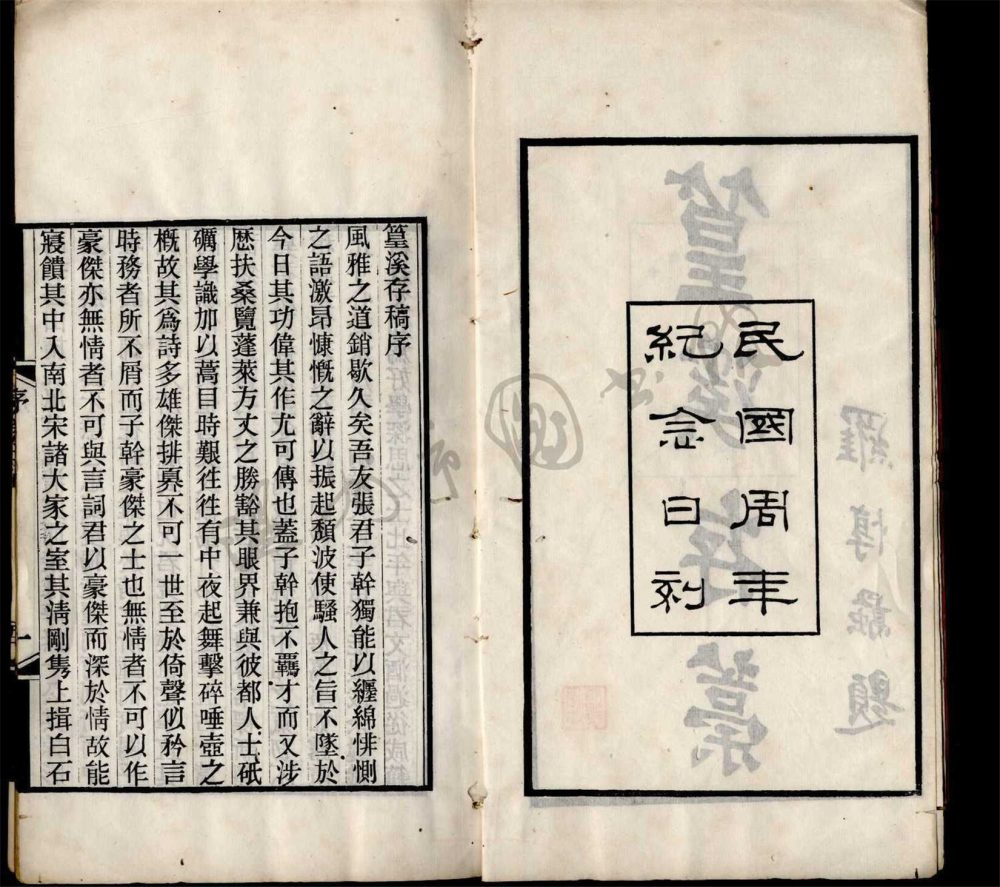 民國周年
紀念日刻
篁溪存稿序
風雅之道銷歇久矣吾友張君子幹獨能以纒綿悱惻
之語激昂慷慨之辭以振起頽波使騷人之旨不墜於
今日其功偉其作尤可傳也蓋子幹抱不羈才而又涉
歷扶桑覽蓬萊方丈之勝豁其眼界兼與彼都人士砥
礪學識加以蒿目時艱徃徃有中夜起舞擊碎唾壺之
概故其爲詩多雄傑排奡不可一世至於倚聲似矜言
時務者所不屑而子幹豪傑之士也無情者不可以作
豪傑亦無情者不可與言詞君以豪傑而深於情故能
寢饋其中入南北宋諸大家之室其淸剛雋上揖白石
序
一